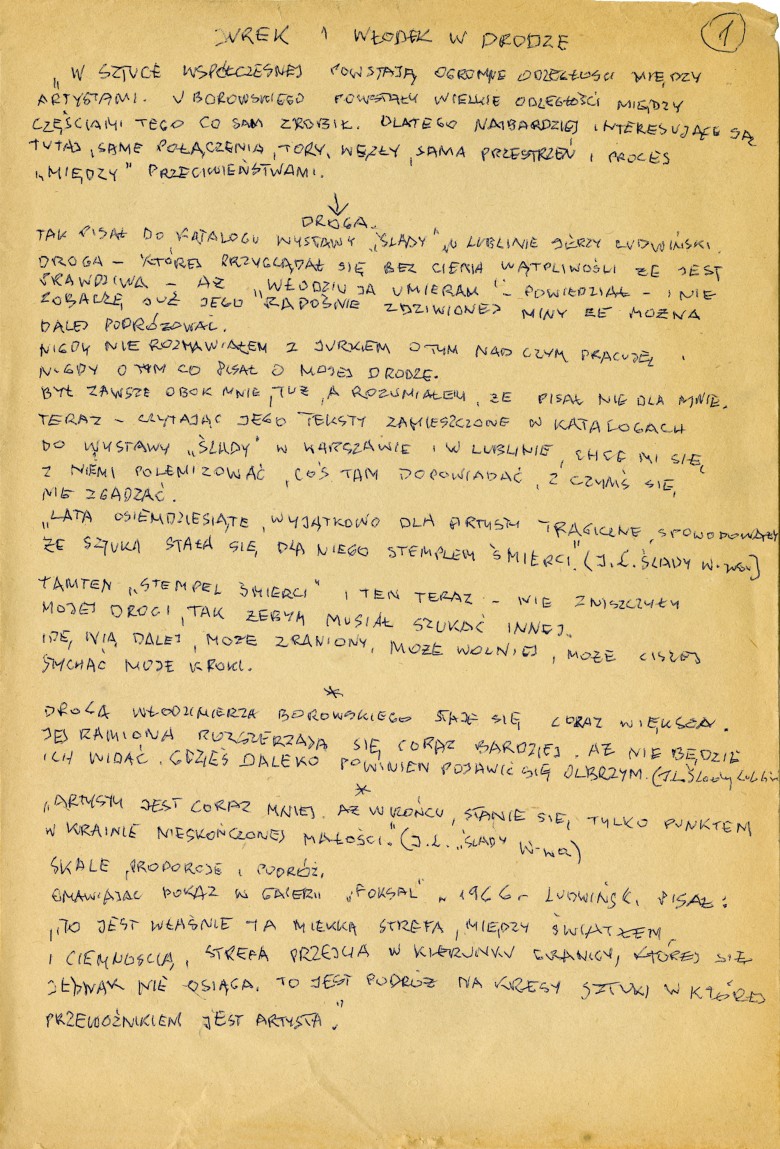 JUREK I WŁODEK W DRODZE
1
„W SZTUCE WSPÓŁCZESNEJ POWSTAJĄ OGROMNE ODLEGŁOŚCI MIĘDZY
ARTYSTAMI. U BOROWSKIEGO POWSTAŁY WIELKIE ODLEGŁOŚCI MIĘDZY
CZĘŚCIAMI TEGO CO SAM ZROBIŁ. DLATEGO NAJBARDZIEJ INTERESUJĄCE SĄ
TUTAJ, SAME POŁĄCZENIA, TORY, WĘZŁY, SAMA PRZESTRZEŃ I PROCES
„MIĘDZY” PRZECIWIEŃSTWAMI.
↓
DROGA.
TAK PISAŁ DO KATALOGU WYSTAWY „ŚLADY” W LUBLINIE JERZY LUDWIŃSKI.
DROGA – KTÓREJ PRZYGLĄDAŁ SIĘ BEZ CIENIA WĄTPLIWOŚCI ŻE JEST
PRAWDZIWA – AŻ „WŁODZIU JA UMIERAM” – POWIEDZIAŁ – I NIE
ZOBACZĘ JUŻ JEGO RADOŚNIE ZDZIWIONEJ MINY ŻE MOŻNA
DALEJ PODRÓŻOWAĆ.
NIGDY NIE ROZMAWIAŁEM Z JURKIEM O TYM NAD CZYM PRACUJĘ I
NIGDY O TYM CO PISAŁ O MOJEJ DRODZE.
BYŁ ZAWSZE OBOK MNIE, TUŻ, A ROZUMIAŁEM, ŻE PISAŁ NIE DLA MNIE.
TERAZ – CZYTAJĄC JEGO TEKSTY ZAMIESZCZONE W KATALOGACH
DO WYSTAWY „ŚLADY” W WARSZAWIE I W LUBLINIE, CHCE MI SIĘ,
Z NIEMI POLEMIZOWAĆ, COŚ TAM DOPOWIADAĆ, Z CZYMŚ SIĘ,
NIE ZGADZAĆ.
„LATA OSIEMDZIESIĄTE, WYJĄTKOWO DLA ARTYSTY TRAGICZNE, SPOWODOWAŁY
ŻE SZTUKA STAŁA SIĘ DLA NIEGO STEMPLEM ŚMIERCI.” (J.L. ŚLADY W-wa)
TAMTEN „STEMPEL ŚMIERCI” I TEN TERAZ – NIE ZNISZCZYŁY
MOJEJ DROGI, TAK ŻEBYM MUSIAŁ SZUKAĆ INNEJ.
IDĘ, NIĄ DALEJ, MOŻE ZRANIONY, MOŻE WOLNIEJ, MOŻE CISZEJ
SŁYCHAĆ MOJE KROKI.
*
DROGA WŁODZIMIERZA BOROWSKIEGO STAJE SIĘ CORAZ WIĘKSZA.
JEJ RAMIONA ROZSZERZAJĄ SIĘ CORAZ BARDZIEJ. AŻ NIE BĘDZIE
ICH WIDAĆ. GDZIEŚ DALEKO POWINIEN POJAWIĆ SIĘ OLBRZYM. (J.L. Ślady Lublin
*
„ARTYSTY JEST CORAZ MNIEJ. AŻ W KOŃCU, STANIE SIĘ, TYLKO PUNKTEM
W KRAINIE NIESKOŃCZONEJ MAŁOŚCI.” (J.L. „ŚLADY W-wa)
SKALE, PROPORCJE I PODRÓŻ.
OMAWIAJĄC POKAZ W GALERII „FOKSAL” w 1966 r LUDWIŃSKI PISAŁ:
„TO JEST WŁAŚNIE TA MIĘKKA STREFA, MIĘDZY ŚWIATŁEM
I CIEMNOŚCIĄ, STREFA PRZEJŚCIA W KIERUNKU GRANICY, KTÓREJ SIĘ
JEDNAK NIE OSIĄGA. TO JEST PODRÓŻ NA KRESY SZTUKI W KTÓREJ
PRZEWOŹNIKIEM JEST ARTYSTA.”